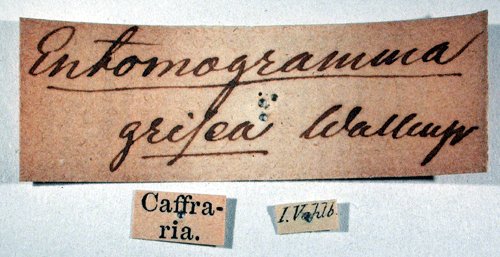 Entomogramma
grisea Wallengr
Caffra-
ria.
J. Vahlb.